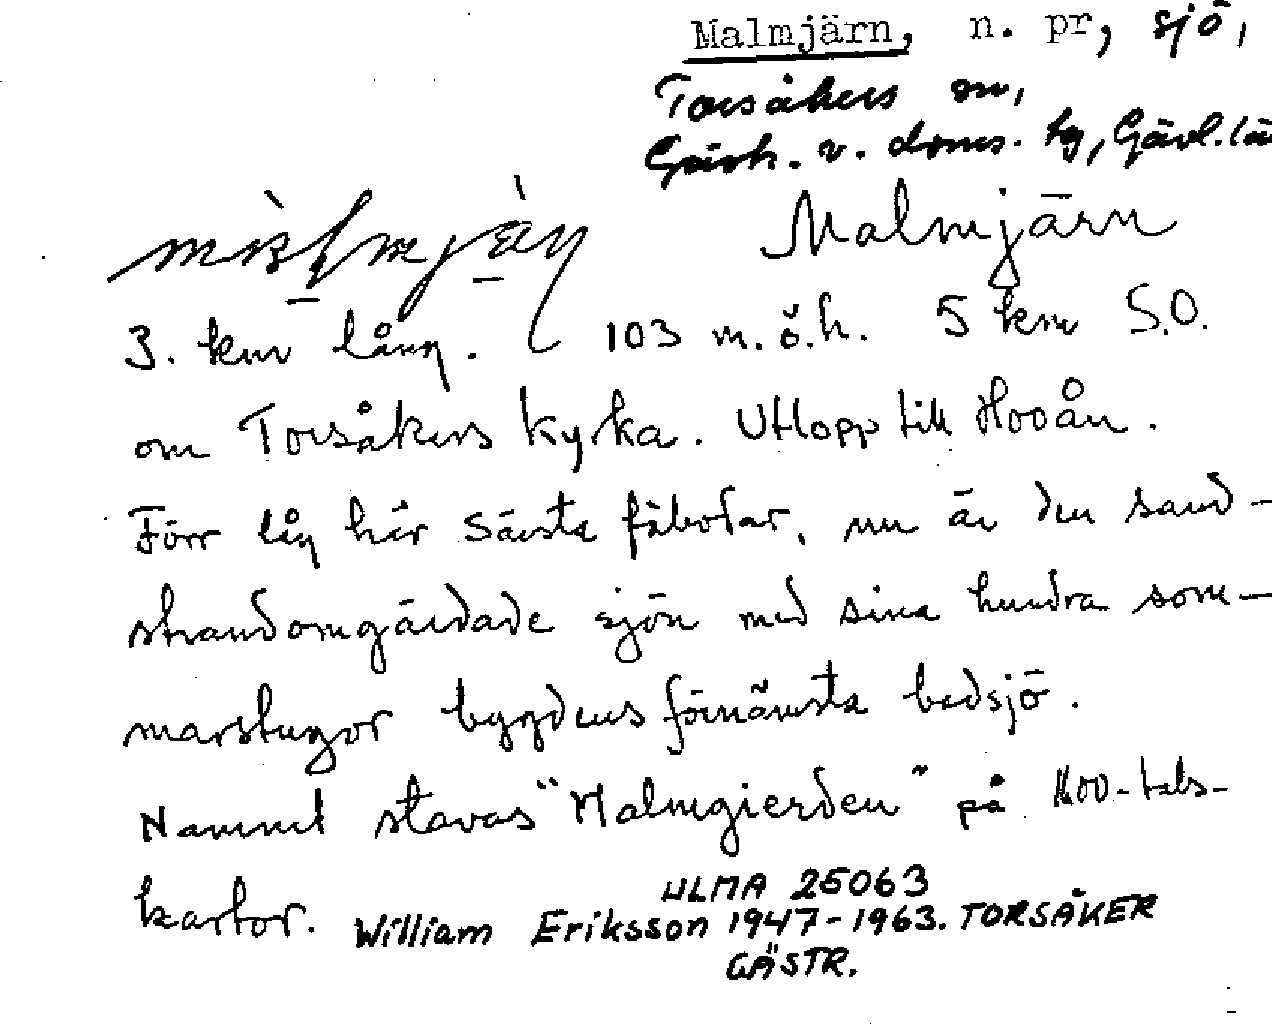 Malmjärn, n. pr, sjö,
Torsåkers sn,
Gästr. v. doms. hg, Gävl. lä
Malmjärn
3. km lång. 103 m.ö.h. 5 km S.O.
om Torsåkers kyrka. Utlopp till Hooån.
Förr låg här Sävsta fäbodar, nu är den sand-
strandomgärdade sjön med sina hundra som-
marstugor bygdens förnämsta badsjö.
Namnet stavas "Malmgierden" på 1600-tals-
kartor.
ULMA 25063
William Eriksson 1947-1963. TORSÅKER
GÄSTR.